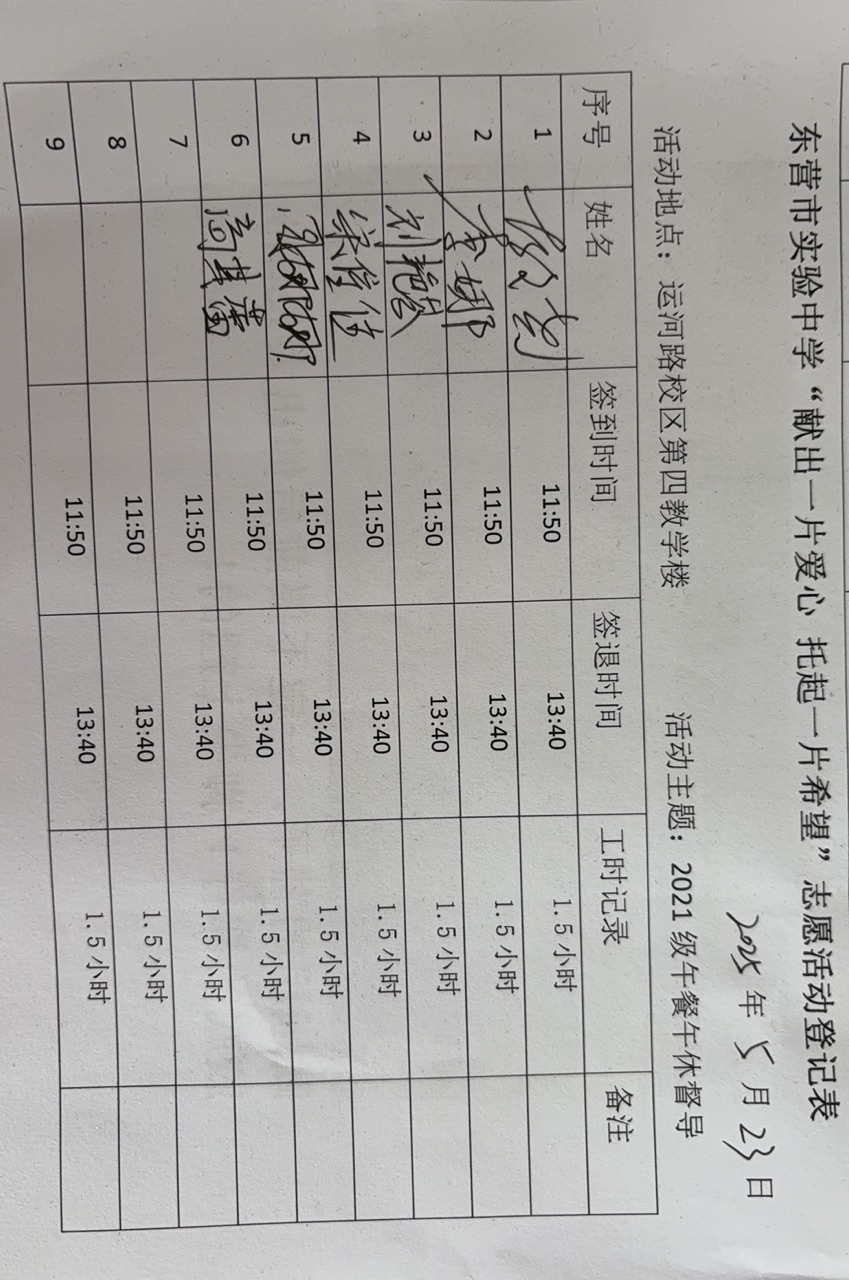 东营市实验中学“献出一片爱心 托起一片希望”志愿活动登记表
2025年5月23日
活动地点：运河路校区第四教学楼 活动主题：2021级午餐午休督导
序号 姓名 签到时间 签退时间 工时记录 备注
1 11:50 13:40 1.5小时
2 李娜 11:50 13:40 1.5小时
3 刘艳 11:50 13:40 1.5小时
4 11:50 13:40 1.5小时
5 11:50 13:40 1.5小时
6 高其蕾 11:50 13:40 1.5小时
7 11:50 13:40 1.5小时
8 11:50 13:40 1.5小时
9 11:50 13:40 1.5小时